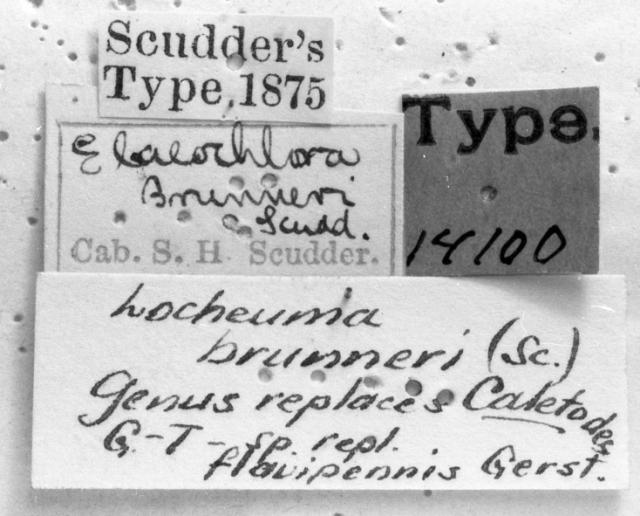 Scudder's
Type, 1875
Elaeochlora
Brunneri
Scudd.
Cab. S. H Scudder.
Type.
14100
Locheuma
brunneri (Sc.)
Genus replaces Caletodes
G.-T- sp. repl.
flavipennis Gerst.